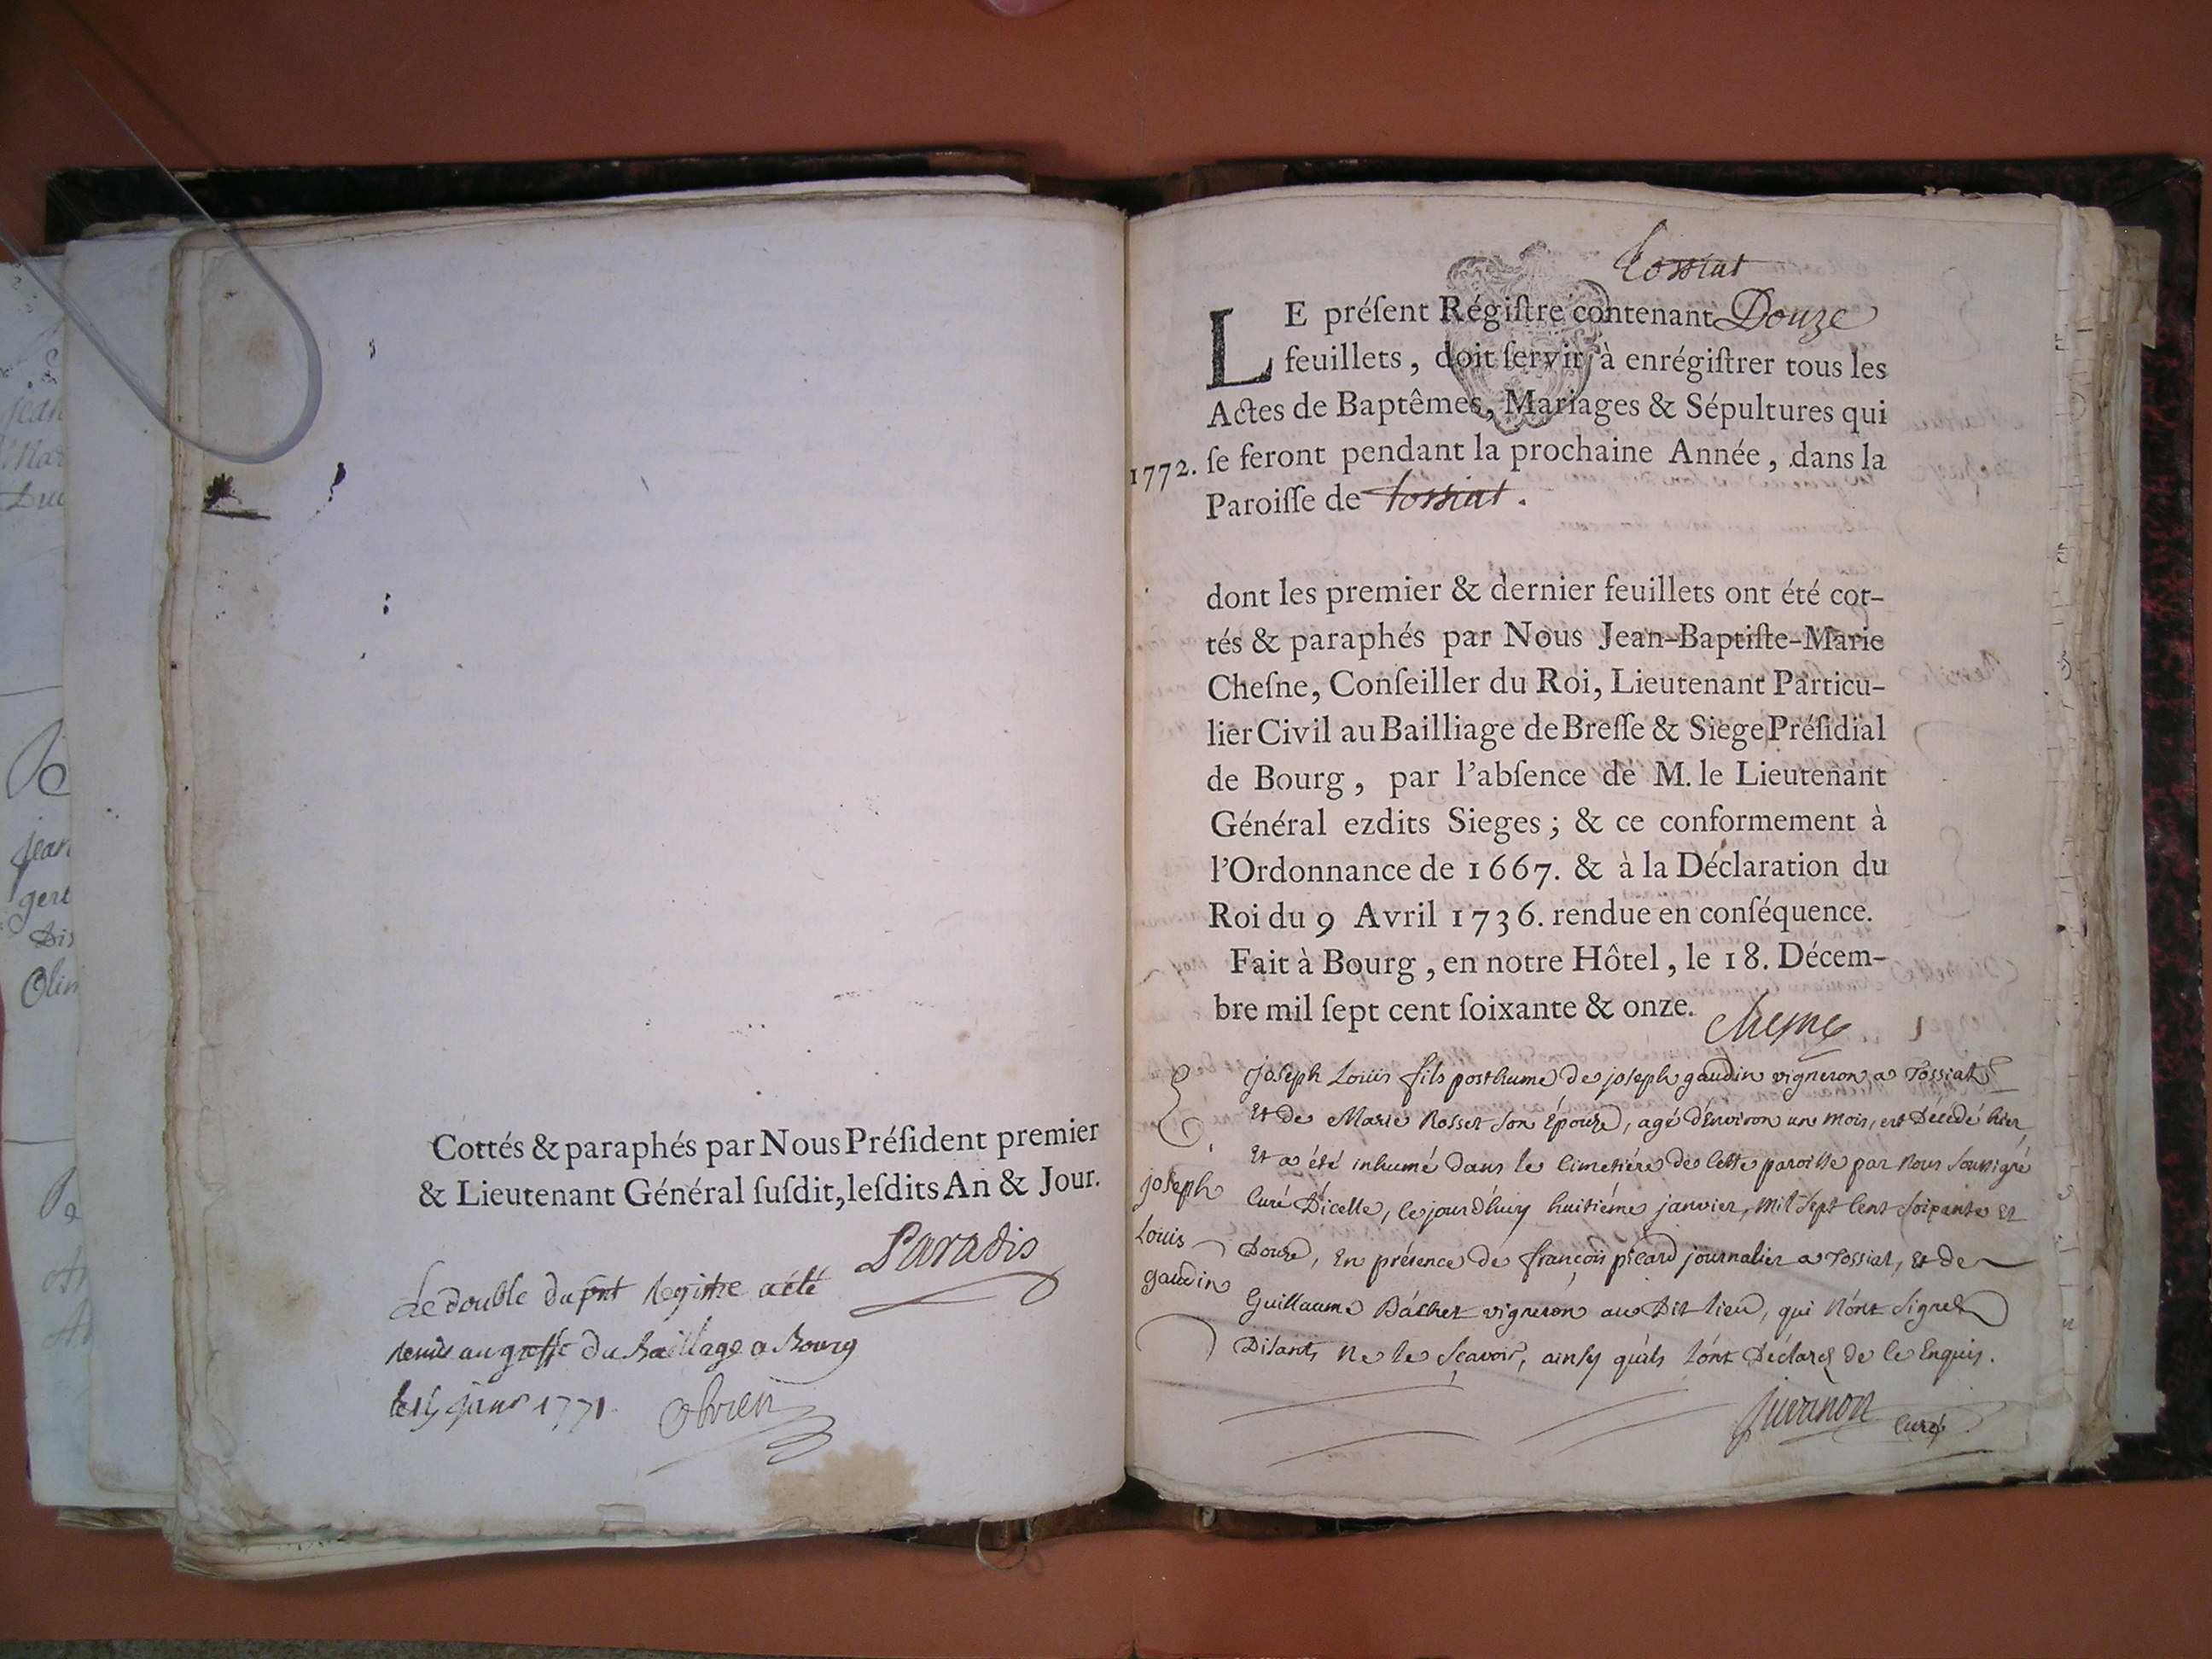 Cottés & paraphés par Nous Préſident premier
& Lieutenant Général ſuſdit, leſdits An & Jour.
Paradis
Le double du pnt Regitre a été
remis au greffe du Bailliage a Bourg
le 15 janr 1771.
Tossiat
LE préſent Régiſtre contenant Douze
feuillets, doit ſervir à enrégiſtrer tous les
Actes de Baptêmes, Mariages & Sépultures qui
1772. ſe feront pendant la prochaine Année, dans la
Paroiſſe de Tossiat.
dont les premier & dernier feuillets ont été cot-
tés & paraphés par Nous Jean-Baptiſte-Marie
Cheſne, Conſeiller du Roi, Lieutenant Particu-
lier Civil au Bailliage de Breſſe & Siege Préſidial
de Bourg, par l'abſence de M. le Lieutenant
Général ezdits Sieges; & ce conformement à
l'Ordonnance de 1667. & à la Déclaration du
Roi du 9 Avril 1736. rendue en conſéquence.
Fait à Bourg, en notre Hôtel, le 18. Décem-
bre mil ſept cent ſoixante & onze.
Chesne
joseph
Louis
gaudin
Joseph Louis fils posthume de joseph gaudin vigneron a Tossiat
Et de Marie Rosset son Épouse, agé d'Environ un mois, est Décédé hier
Et a été inhumé dans le Cimetiére de Cette paroisse par Nous soussigné
Curé D'icelle, cejourd'huy huitiéme janvier, mil sept Cent soixante Et
Douze, En présence de françois picard journalier a Tossiat, Et de
Guillaume vigneron au Dit lieu, qui N'ont signez
Disants Ne le Sçavoir, ainsy qu'ils L'ont Déclarez de Ce Enquis.
Juvanon Curé